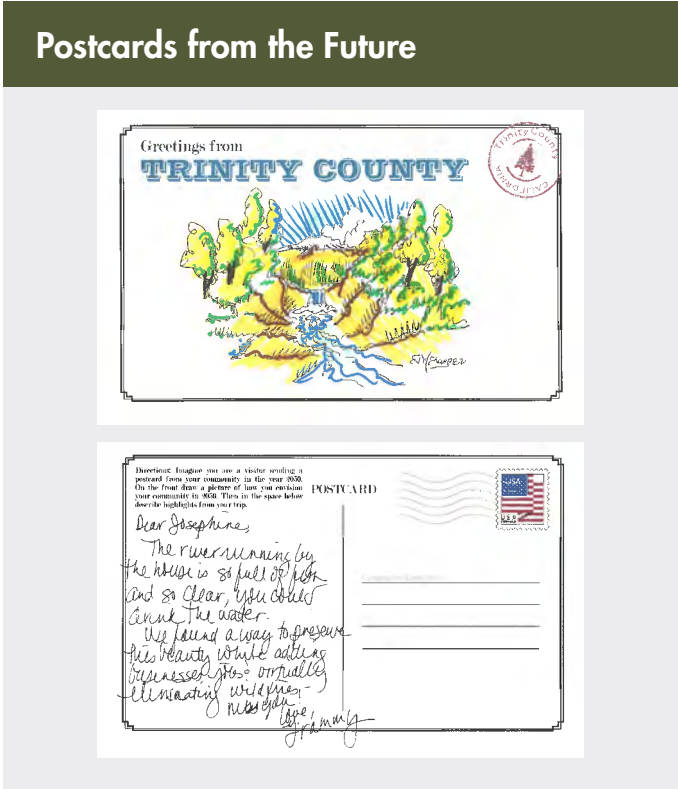 Postcards from the Future
Greetings from
TRINITY COUNTY
Trinity County
CALIFORNIA
Directions: Imagine you are a visitor sending a
postcard from your community in the year 2050.
On the front draw a picture of how you envision
your community in 2050. Then in the space below
describe highlights from your trip.
POSTCARD
USA
Dear Josephine,
The river running by
the house is so full of fish
and so clear, you could
drink the water.
We found a way to preserve
this beauty while adding
businesses, jobs & virtually
eliminating wildfires,-
miss you.
Love,
Grammy